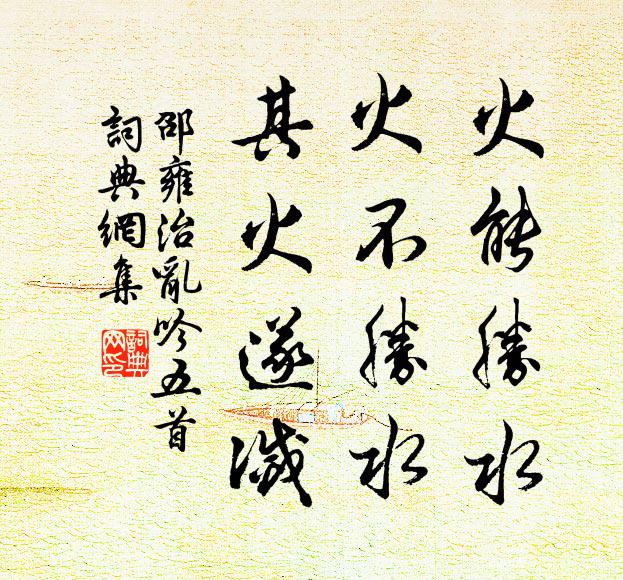 火能勝水
火不勝水
其火遂滅
邵雍治亂吟五首
詞典網集
詞典
网印